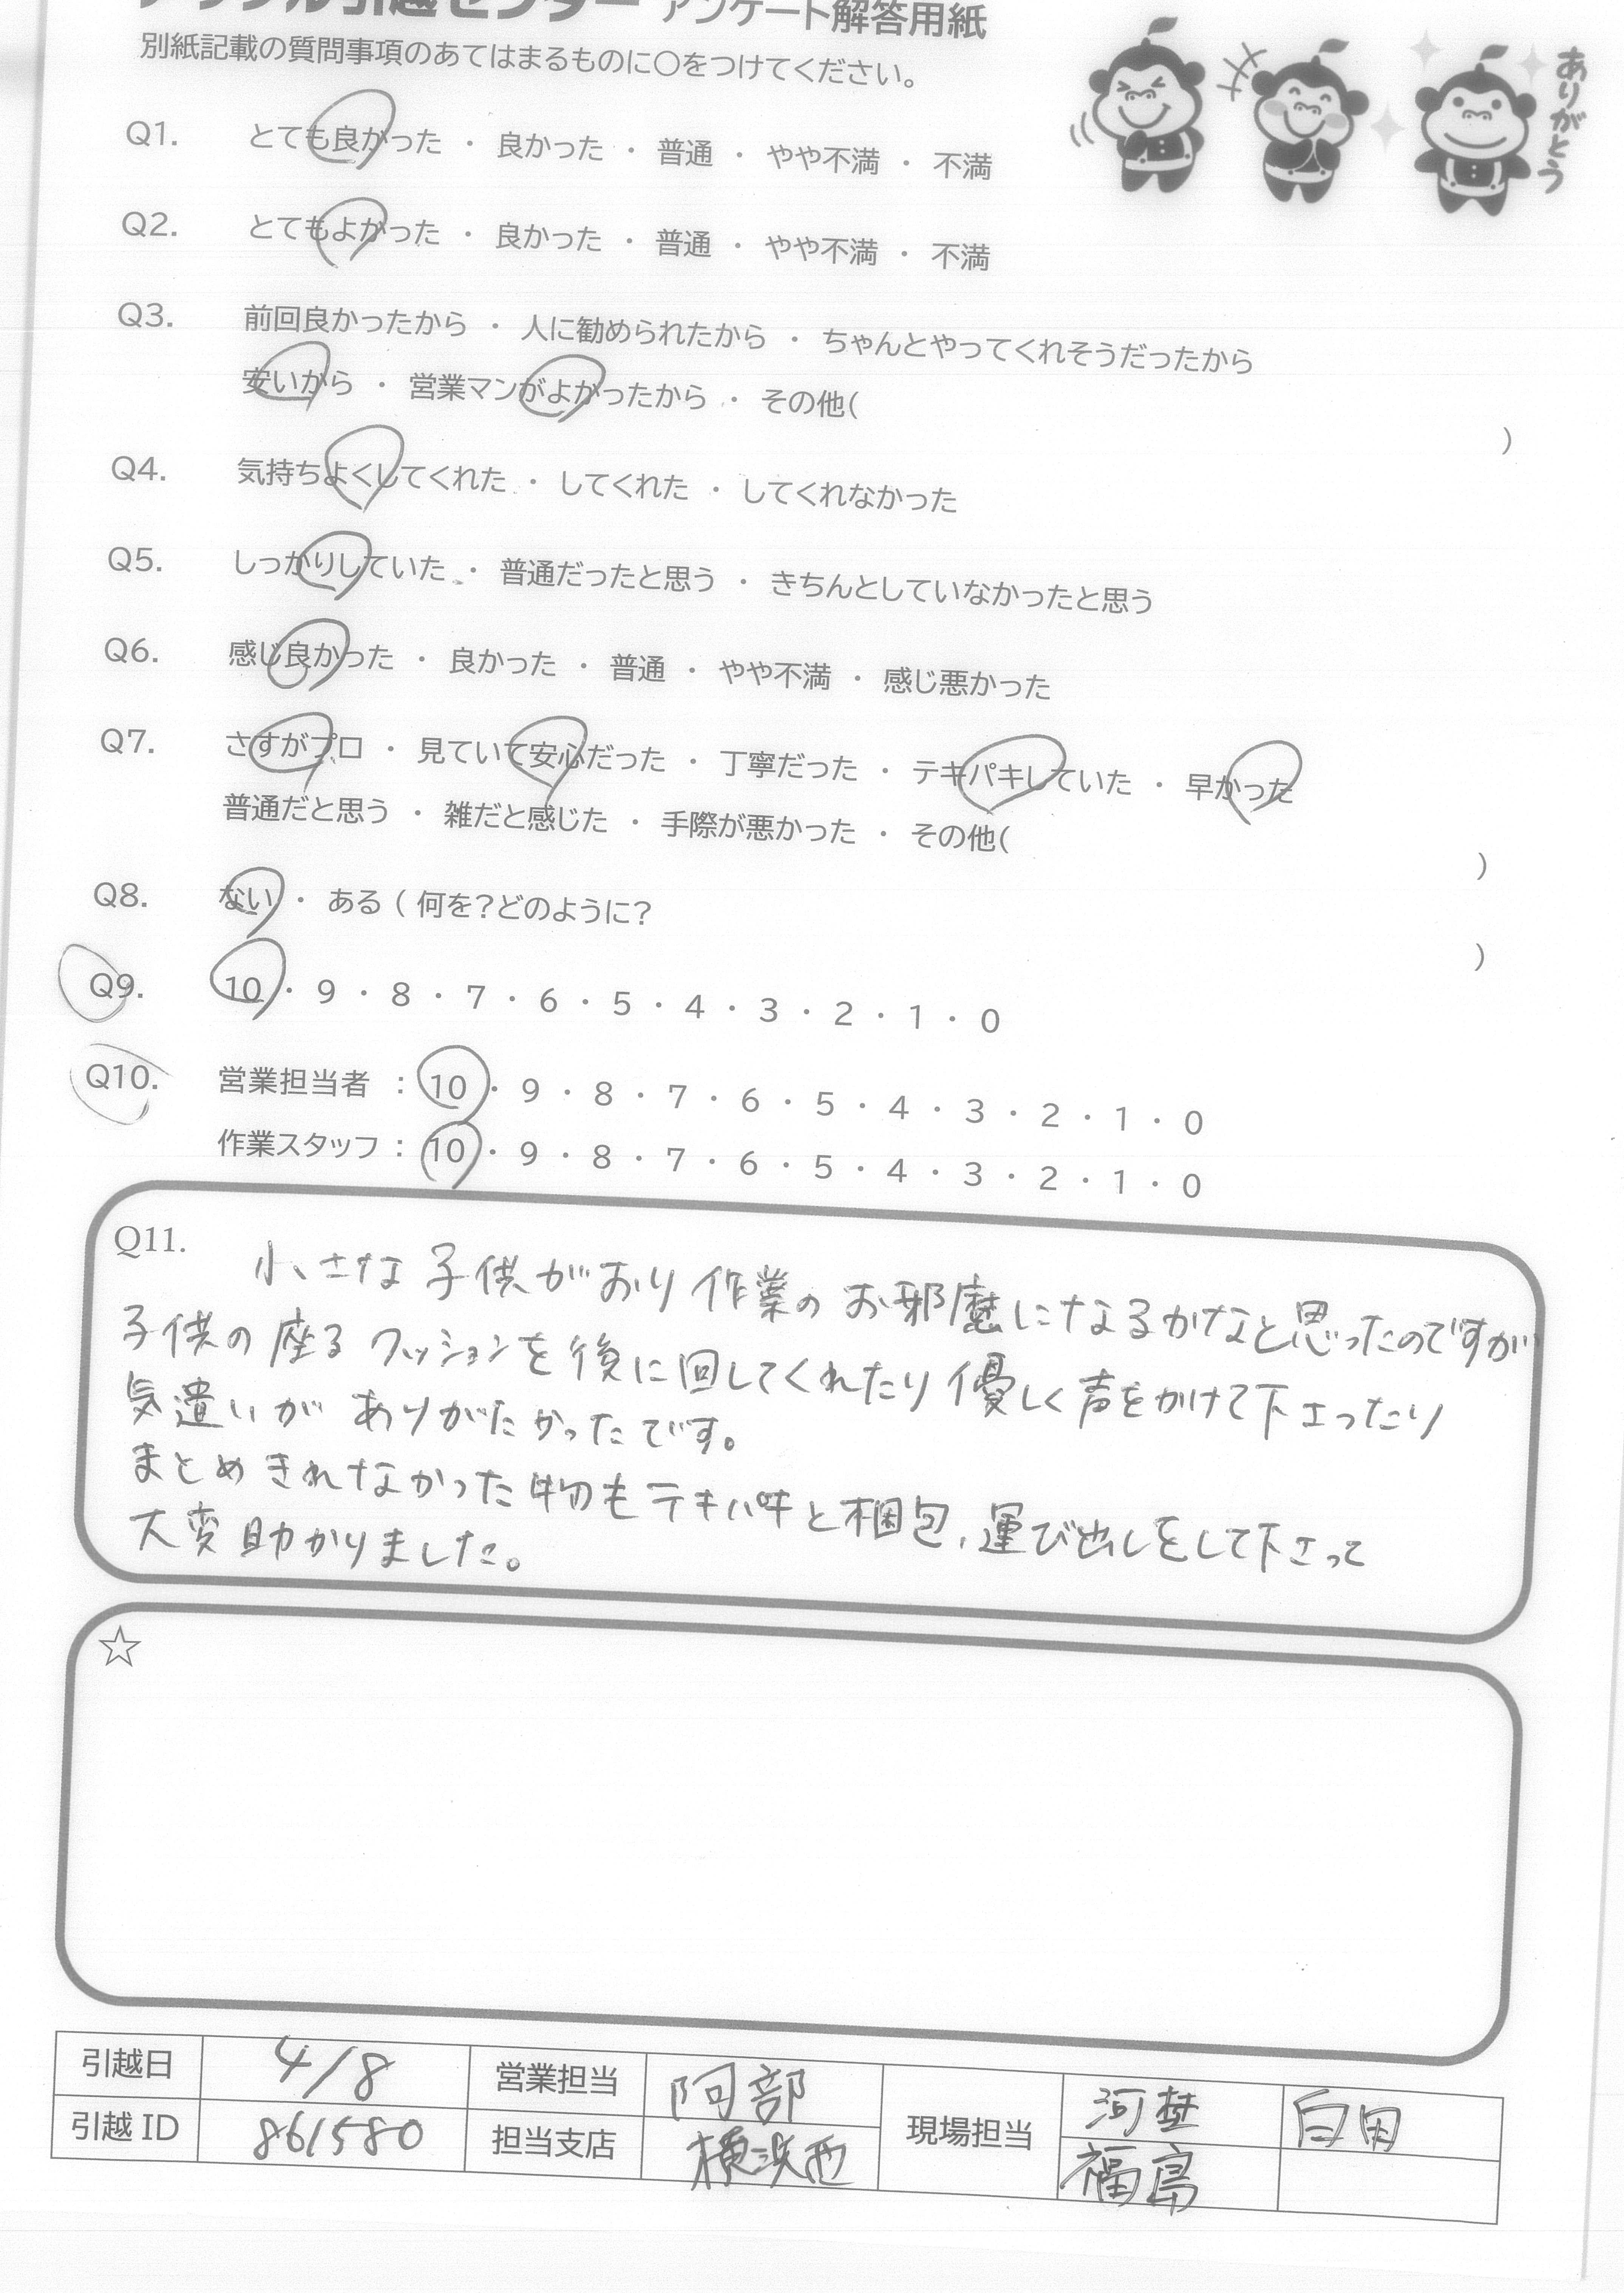 アップル引越センター アンケート解答用紙
別紙記載の質問事項のあてはまるものに○をつけてください。
ありがとう
Q1. とても良かった ・ 良かった ・ 普通 ・ やや不満 ・ 不満
Q2. とてもよかった ・ 良かった ・ 普通 ・ やや不満 ・ 不満
Q3. 前回良かったから ・ 人に勧められたから ・ ちゃんとやってくれそうだったから
安いから ・ 営業マンがよかったから ・ その他( )
Q4. 気持ちよくしてくれた ・ してくれた ・ してくれなかった
Q5. しっかりしていた ・ 普通だったと思う ・ きちんとしていなかったと思う
Q6. 感じ良かった ・ 良かった ・ 普通 ・ やや不満 ・ 感じ悪かった
Q7. さすがプロ ・ 見ていて安心だった ・ 丁寧だった ・ テキパキしていた ・ 早かった
普通だと思う ・ 雑だと感じた ・ 手際が悪かった ・ その他( )
Q8. ない ・ ある ( 何を?どのように? )
Q9. 10 ・ 9 ・ 8 ・ 7 ・ 6 ・ 5 ・ 4 ・ 3 ・ 2 ・ 1 ・ 0
Q10. 営業担当者 : 10 ・ 9 ・ 8 ・ 7 ・ 6 ・ 5 ・ 4 ・ 3 ・ 2 ・ 1 ・ 0
作業スタッフ : 10 ・ 9 ・ 8 ・ 7 ・ 6 ・ 5 ・ 4 ・ 3 ・ 2 ・ 1 ・ 0
Q11. 小さな子供がおり作業のお邪魔になるかなと思ったのですが
子供の座るクッションを後に回してくれたり優しく声をかけて下さったり
気遣いがありがたかったです。
まとめきれなかった物もテキパキと梱包、運び出しをして下さって
大変助かりました。
☆
引越日 4/8 営業担当 阿部 現場担当 河埜 白田
引越ID 861580 担当支店 横浜西 福島